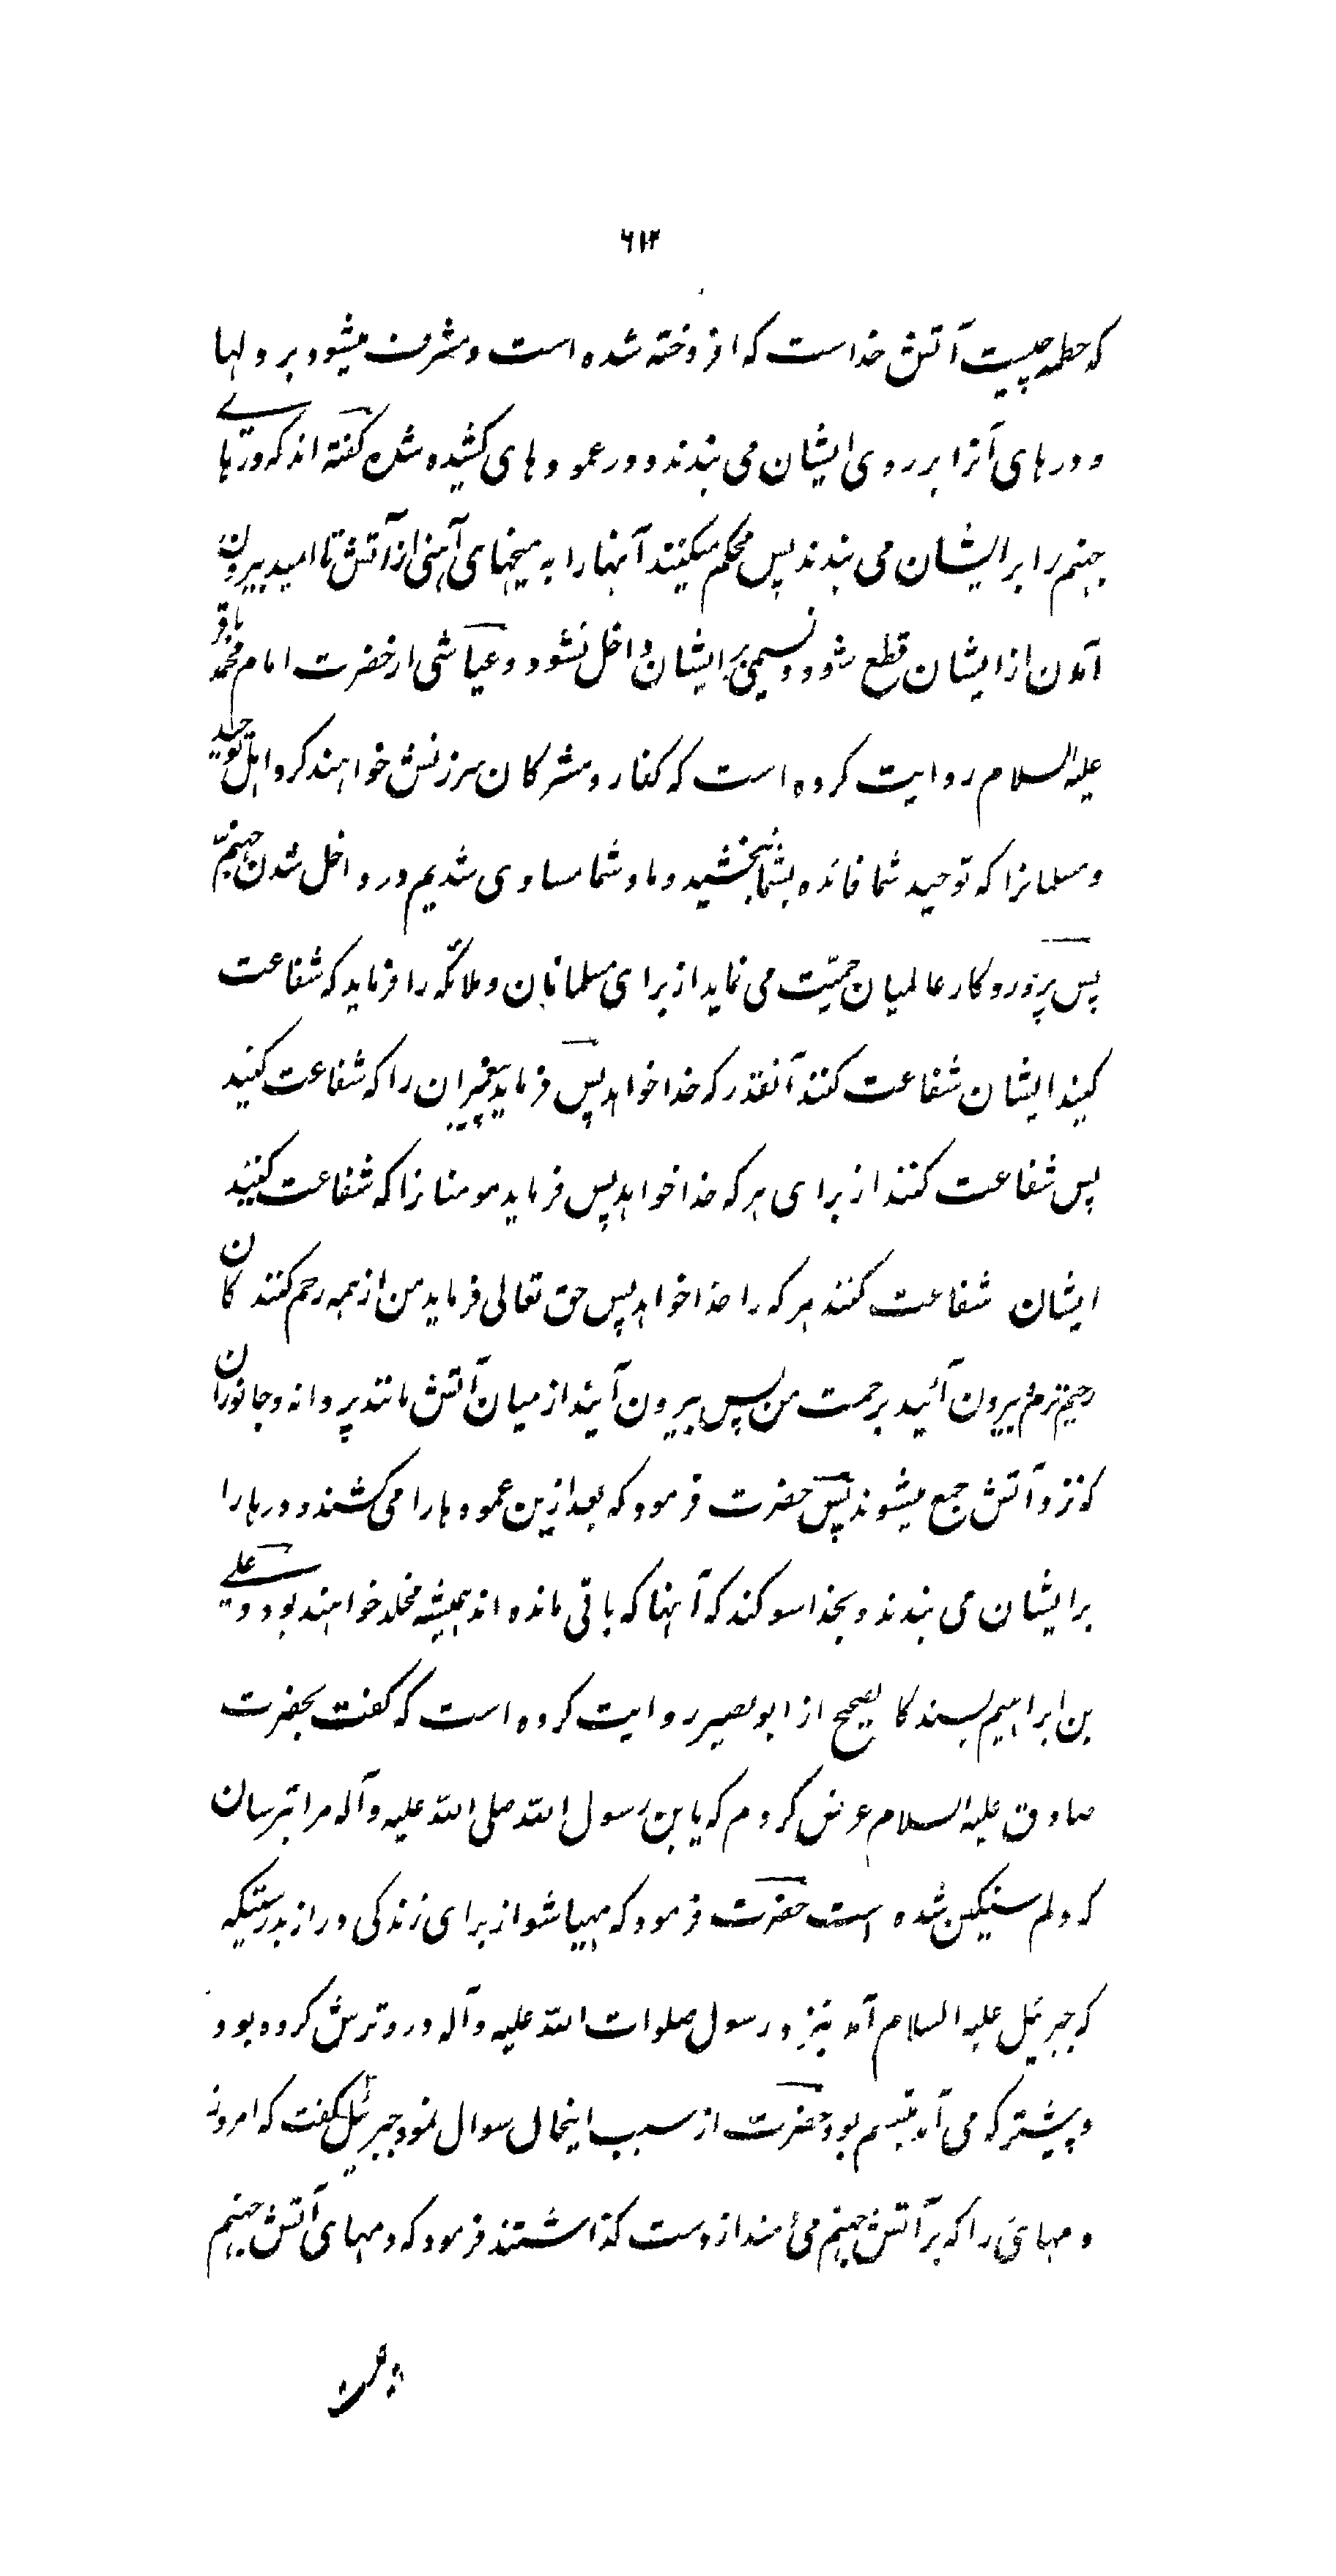 ۶۱۲
که حطمه چیست آتش خداست که افروخته شده است و مشرف میشود بر دلها
و درهای آنرا بر روی ایشان می بندند و در عمودهای کشیده شده گفته اند که درهای
جهنم را بر ایشان می بندند پس محکم میکنند آنها را به میخهای آهنی از آتش تا امید بیرون
آمدن از ایشان قطع شود و نسیمی بر ایشان داخل نشود و عیاشی از حضرت امام محمد باقر
علیه السلام روایت کرده است که کفار و مشرکان سرزنش خواهند کرد اهل توحید
و مسلمانرا که توحید شما فائده بشما نبخشید و ما و شما مساوی شدیم در داخل شدن جهنم
پس پروردگار عالمیان حمیّت می نماید از برای مسلمانان و ملائکه را فرماید که شفاعت
کنید ایشان شفاعت کنند آنقدر که خدا خواهد پس فرماید پیغمبران را که شفاعت کنید
پس شفاعت کنند از برای هر که خدا خواهد پس فرماید مومنانرا که شفاعت کنید
ایشان شفاعت کنند هر که را خدا خواهد پس حق تعالی فرماید من از همه رحم کنندگان
رحیم ترم بیرون آئید برحمت من پس بیرون آیند از میان آتش مانند پروانه و جانوران
که نزد آتش جمع میشوند پس حضرت فرمود که بعد ازین عمودها را می کشند و درها را
بر ایشان می بندند و بخدا سوگند که آنها که باقی مانده اند همیشه مخلد خواهند بود و علی
بن ابراهیم بسند کالصحیح از ابوبصیر روایت کرده است که گفت بحضرت
صادق علیه السلام عرض کردم که یابن رسول الله صلی الله علیه و آله مرا بترسان
که دلم سنگین شده است حضرت فرمود که مهیا شو از برای زندگی دراز بدرستیکه
که جبرئیل علیه السلام آمد بنزد رسول صلوات الله علیه و آله و رو ترش کرده بود
و پیشتر که می آمد متبسم بود حضرت از سبب اینحال سوال نمود جبرئیل گفت که امروز
دمهائی را که بر آتش جهنم می دمند از دست گذاشتند فرمود که دمهای آتش جهنم